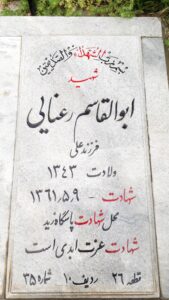 بسم رب الشهداء و الصدیقین
شهید
ابوالقاسم رعنایی
فرزند علی
ولادت ۱۳۴۳
شهادت - ۱۳۶۱٫۵٫۹
محل شهادت پاسگاه زید
شهادت عزت ابدی است
قطعه ۲۶ ردیف ۱۰ شماره ۳۵